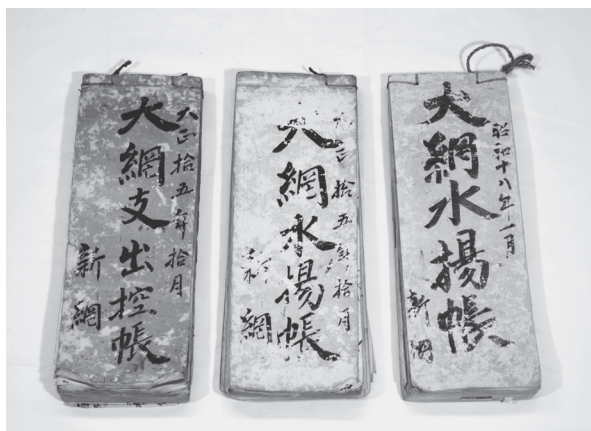 大正拾五年拾月
大網支出控帳
新網
大正拾五年拾月
大網水揚帳
網
昭和十八年一月
大網水揚帳
新網